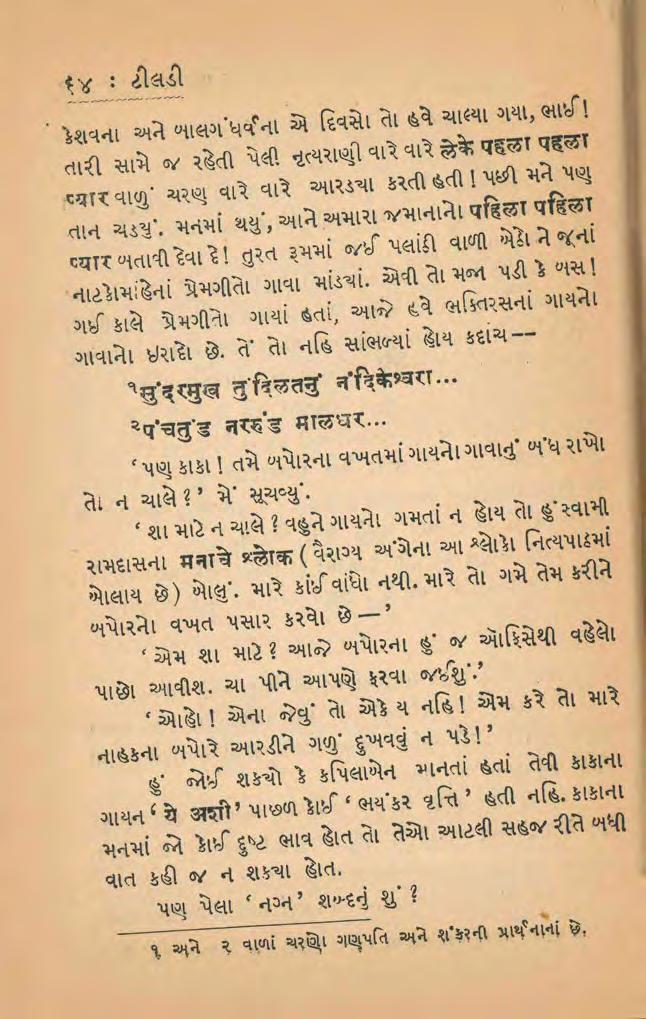 ૬૪ : ટીલડી
કેશવના અને બાલગંધર્વના એ દિવસો તો હવે ચાલ્યા ગયા, ભાઈ!
તારી સામે જ રહેતી પેલી નૃત્યરાણી વારે વારે लेके पहला पहला
प्यार વાળું ચરણ વારે વારે આરડ્યા કરતી હતી! પછી મને પણ
તાન ચડયું. મનમાં થયું, આને અમારા જમાનાનો पहिला पहिला
प्यार બતાવી દેવા દે! તુરત રૂમમાં જઈ પલાંઠી વાળી બેઠો ને જૂનાં
નાટકોમાંહેનાં પ્રેમગીતો ગાવા માંડ્યાં. એવી તો મજા પડી કે બસ!
ગઈ કાલે પ્રેમગીતો ગાયાં હતાં, આજે હવે ભક્તિરસનાં ગાયનો
ગાવાનો ઇરાદો છે. તેં તો નહિ સાંભળ્યાં હોય કદાચ——
૧સુંદરમુખ તુંદિલતનું નંદિકેશ્વરા...
૨પંચતુંડ નરરુંડ માલધર...
‘પણ કાકા! તમે બપોરના વખતમાં ગાયનો ગાવાનું બંધ રાખો
તો ન ચાલે?’ મેં સૂચવ્યું.
‘શા માટે ન ચાલે? વહુને ગાયનો ગમતાં ન હોય તો હું સ્વામી
રામદાસના मनाचे श्लोक (વૈરાગ્ય અંગેના આ શ્લોકો નિત્યપાઠમાં
બોલાય છે) બોલું. મારે કાંઈ વાંધો નથી. મારે તો ગમે તેમ કરીને
બપોરનો વખત પસાર કરવો છે —’
‘એમ શા માટે? આજે બપોરના હું જ ઑફિસેથી વહેલો
પાછો આવીશ. ચા પીને આપણે ફરવા જઈશું.’
‘ઓહો! એના જેવું તો એકે ય નહિ! એમ કરે તો મારે
નાહકના બપોરે આરડીને ગળું દુખવવું ન પડે!’
હું જોઈ શકયો કે કપિલાબેન માનતાં હતાં તેવી કાકાના
ગાયન ‘ये अशी’ પાછળ કોઈ ‘ભયંકર વૃત્તિ’ હતી નહિ. કાકાના
મનમાં જો કોઈ દુષ્ટ ભાવ હોત તો તેઓ આટલી સહજ રીતે બધી
વાત કહી જ ન શકયા હોત.
પણ પેલા ‘નગ્ન’ શબ્દનું શું?
૧ અને ૨ વાળાં ચરણો ગણપતિ અને શંકરની પ્રાર્થનાનાં છે.